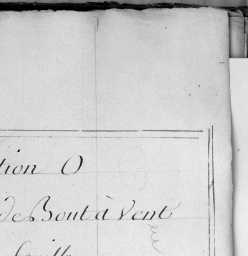 tion O
de Bout à Vent